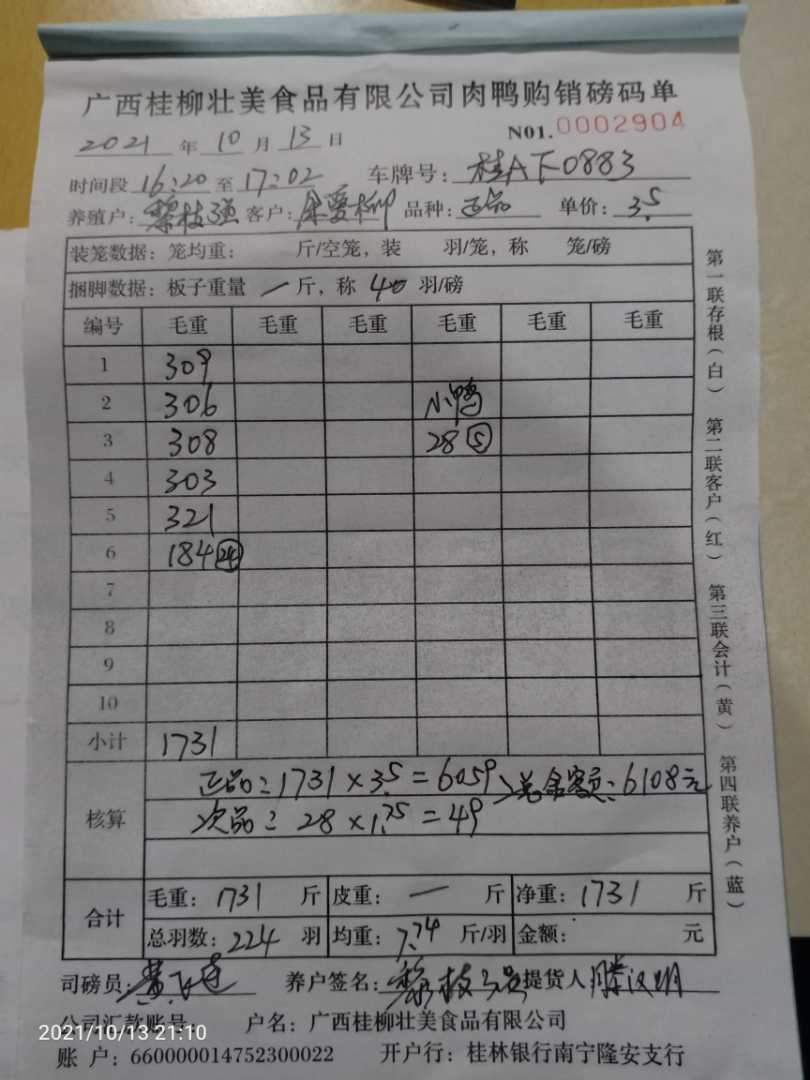 广西桂柳壮美食品有限公司肉鸭购销磅码单
2021 年 10 月 13 日 N01.0002904
时间段 16:20 至 17:02 车牌号: 桂A F0883
养殖户: 黎枝强 客户: 爱柳 品种: 正品 单价: 3.5
装笼数据: 笼均重: 斤/空笼, 装 羽/笼, 称 笼/磅
捆脚数据: 板子重量 一 斤, 称 40 羽/磅
编号 毛重 毛重 毛重 毛重 毛重 毛重
1 309
2 306 小鸭
3 308 28 ⑤
4 303
5 321
6 184 ㉔
7
8
9
10
小计 1731
核算 正品: 1731 × 3.5 = 6059 总金额: 6108元
次品: 28 × 1.75 = 49
合计 毛重: 1731 斤 皮重: 一 斤 净重: 1731 斤
总羽数: 224 羽 均重: 7.74 斤/羽 金额: 元
司磅员: 黄 养户签名: 黎枝强 提货人 滕汉明
公司汇款账号 户名: 广西桂柳壮美食品有限公司
账 户: 660000014752300022 开户行: 桂林银行南宁隆安支行
第一联存根(白) 第二联客户(红) 第三联会计(黄) 第四联养户(蓝)
2021/10/13 21:10